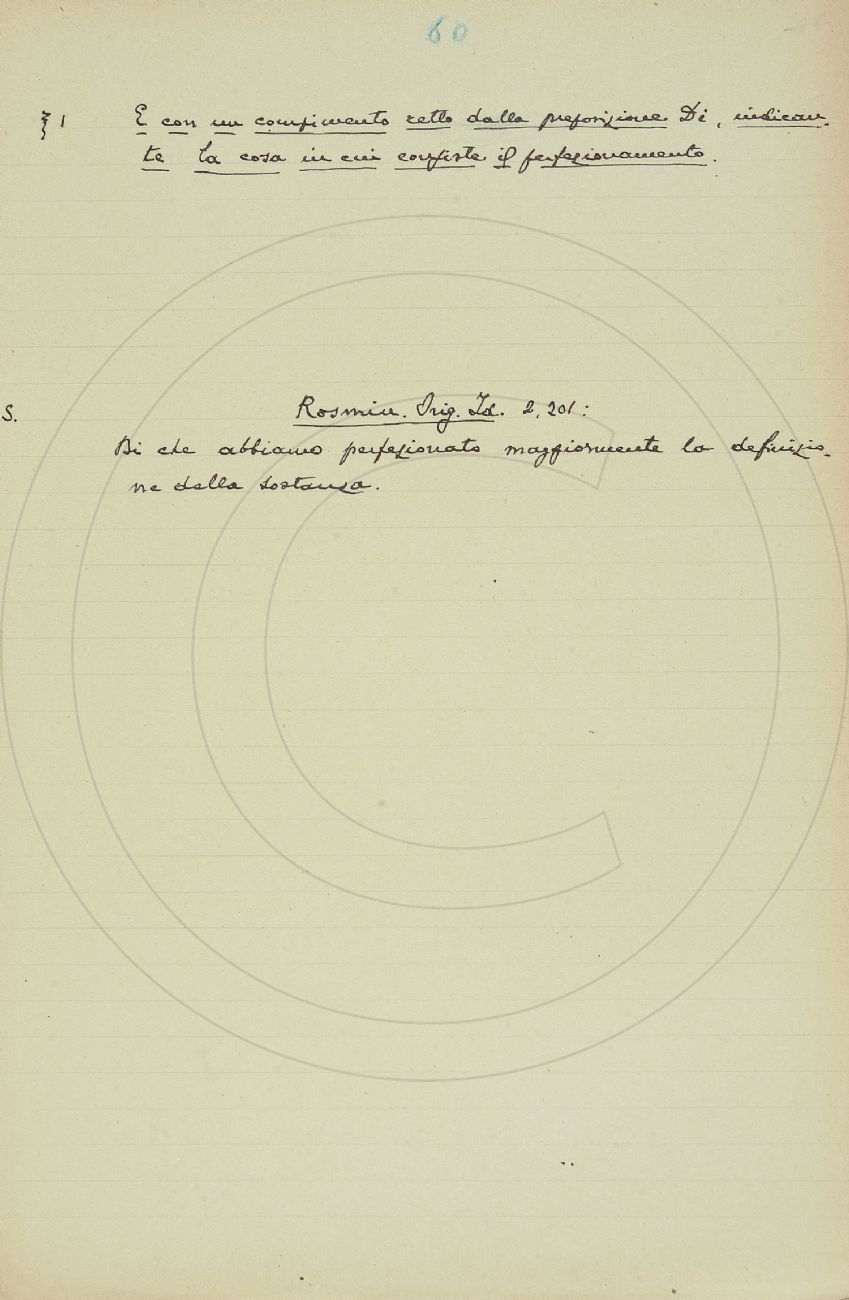 60
ξ 1 E con un compimento retto dalla preposizione Di, indican-
te la cosa in cui consiste il perfezionamento.
S. Rosmin. Orig. Id. 2, 201:
Di che abbiamo perfezionato maggiormente la definizio-
ne della sostanza.